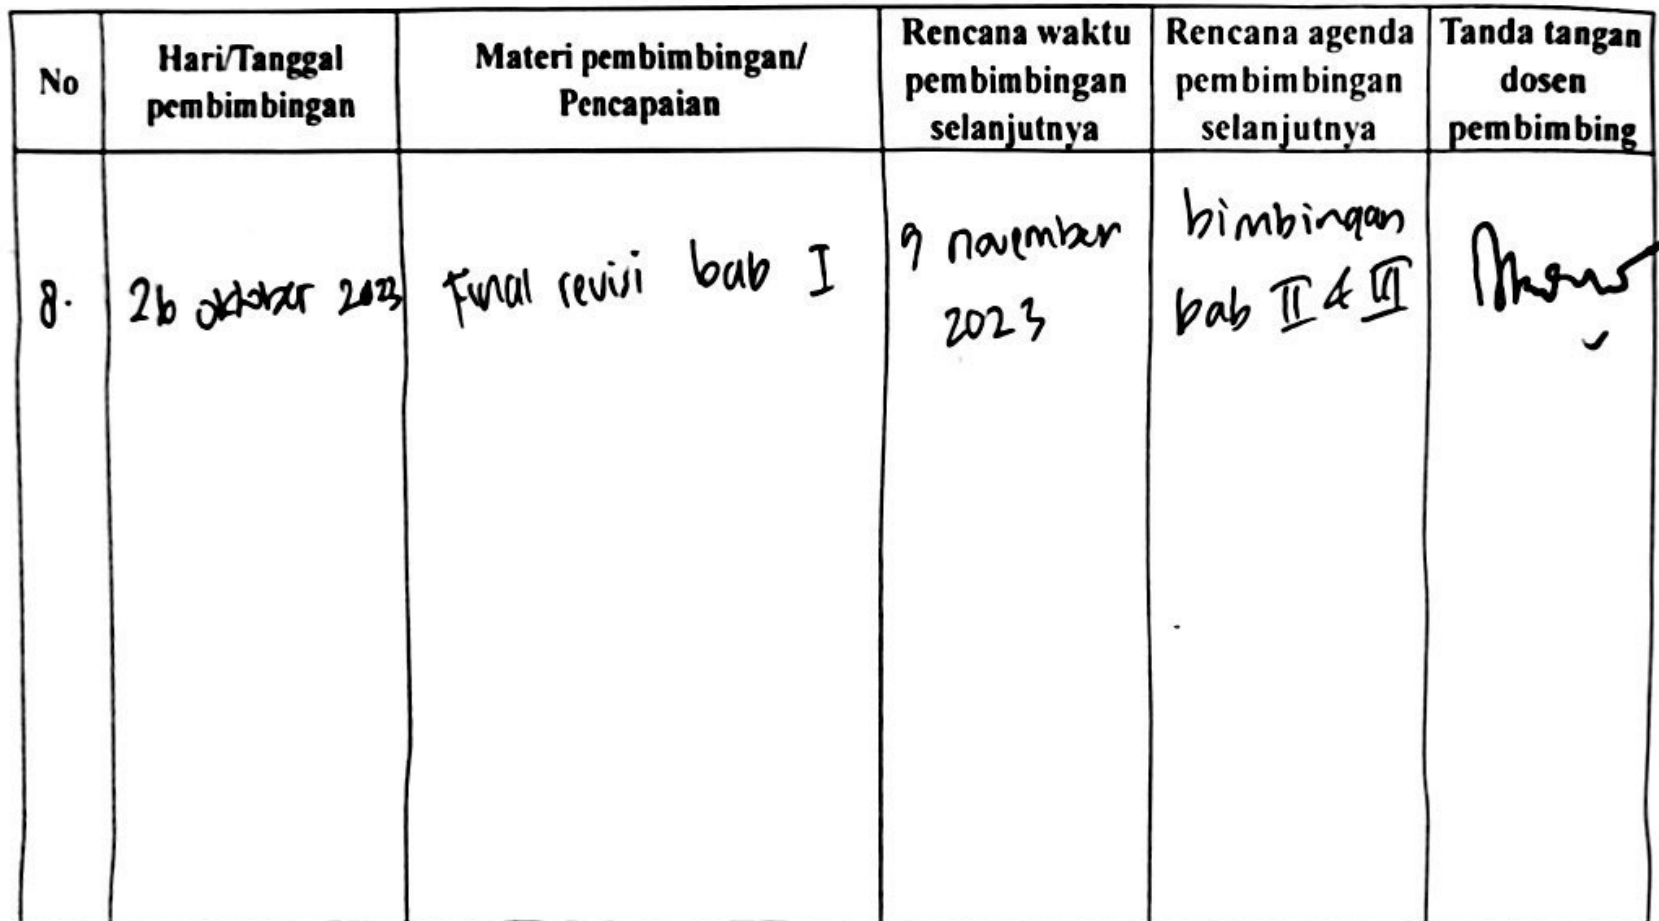 No
Hari/Tanggal
pembimbingan
Materi pembimbingan/
Pencapaian
Rencana waktu
pembimbingan
selanjutnya
Rencana agenda
pembimbingan
selanjutnya
Tanda tangan
dosen
pembimbing
8.
26 oktober 2023
Final revisi bab I
9 november
2023
bimbingan
bab II & III